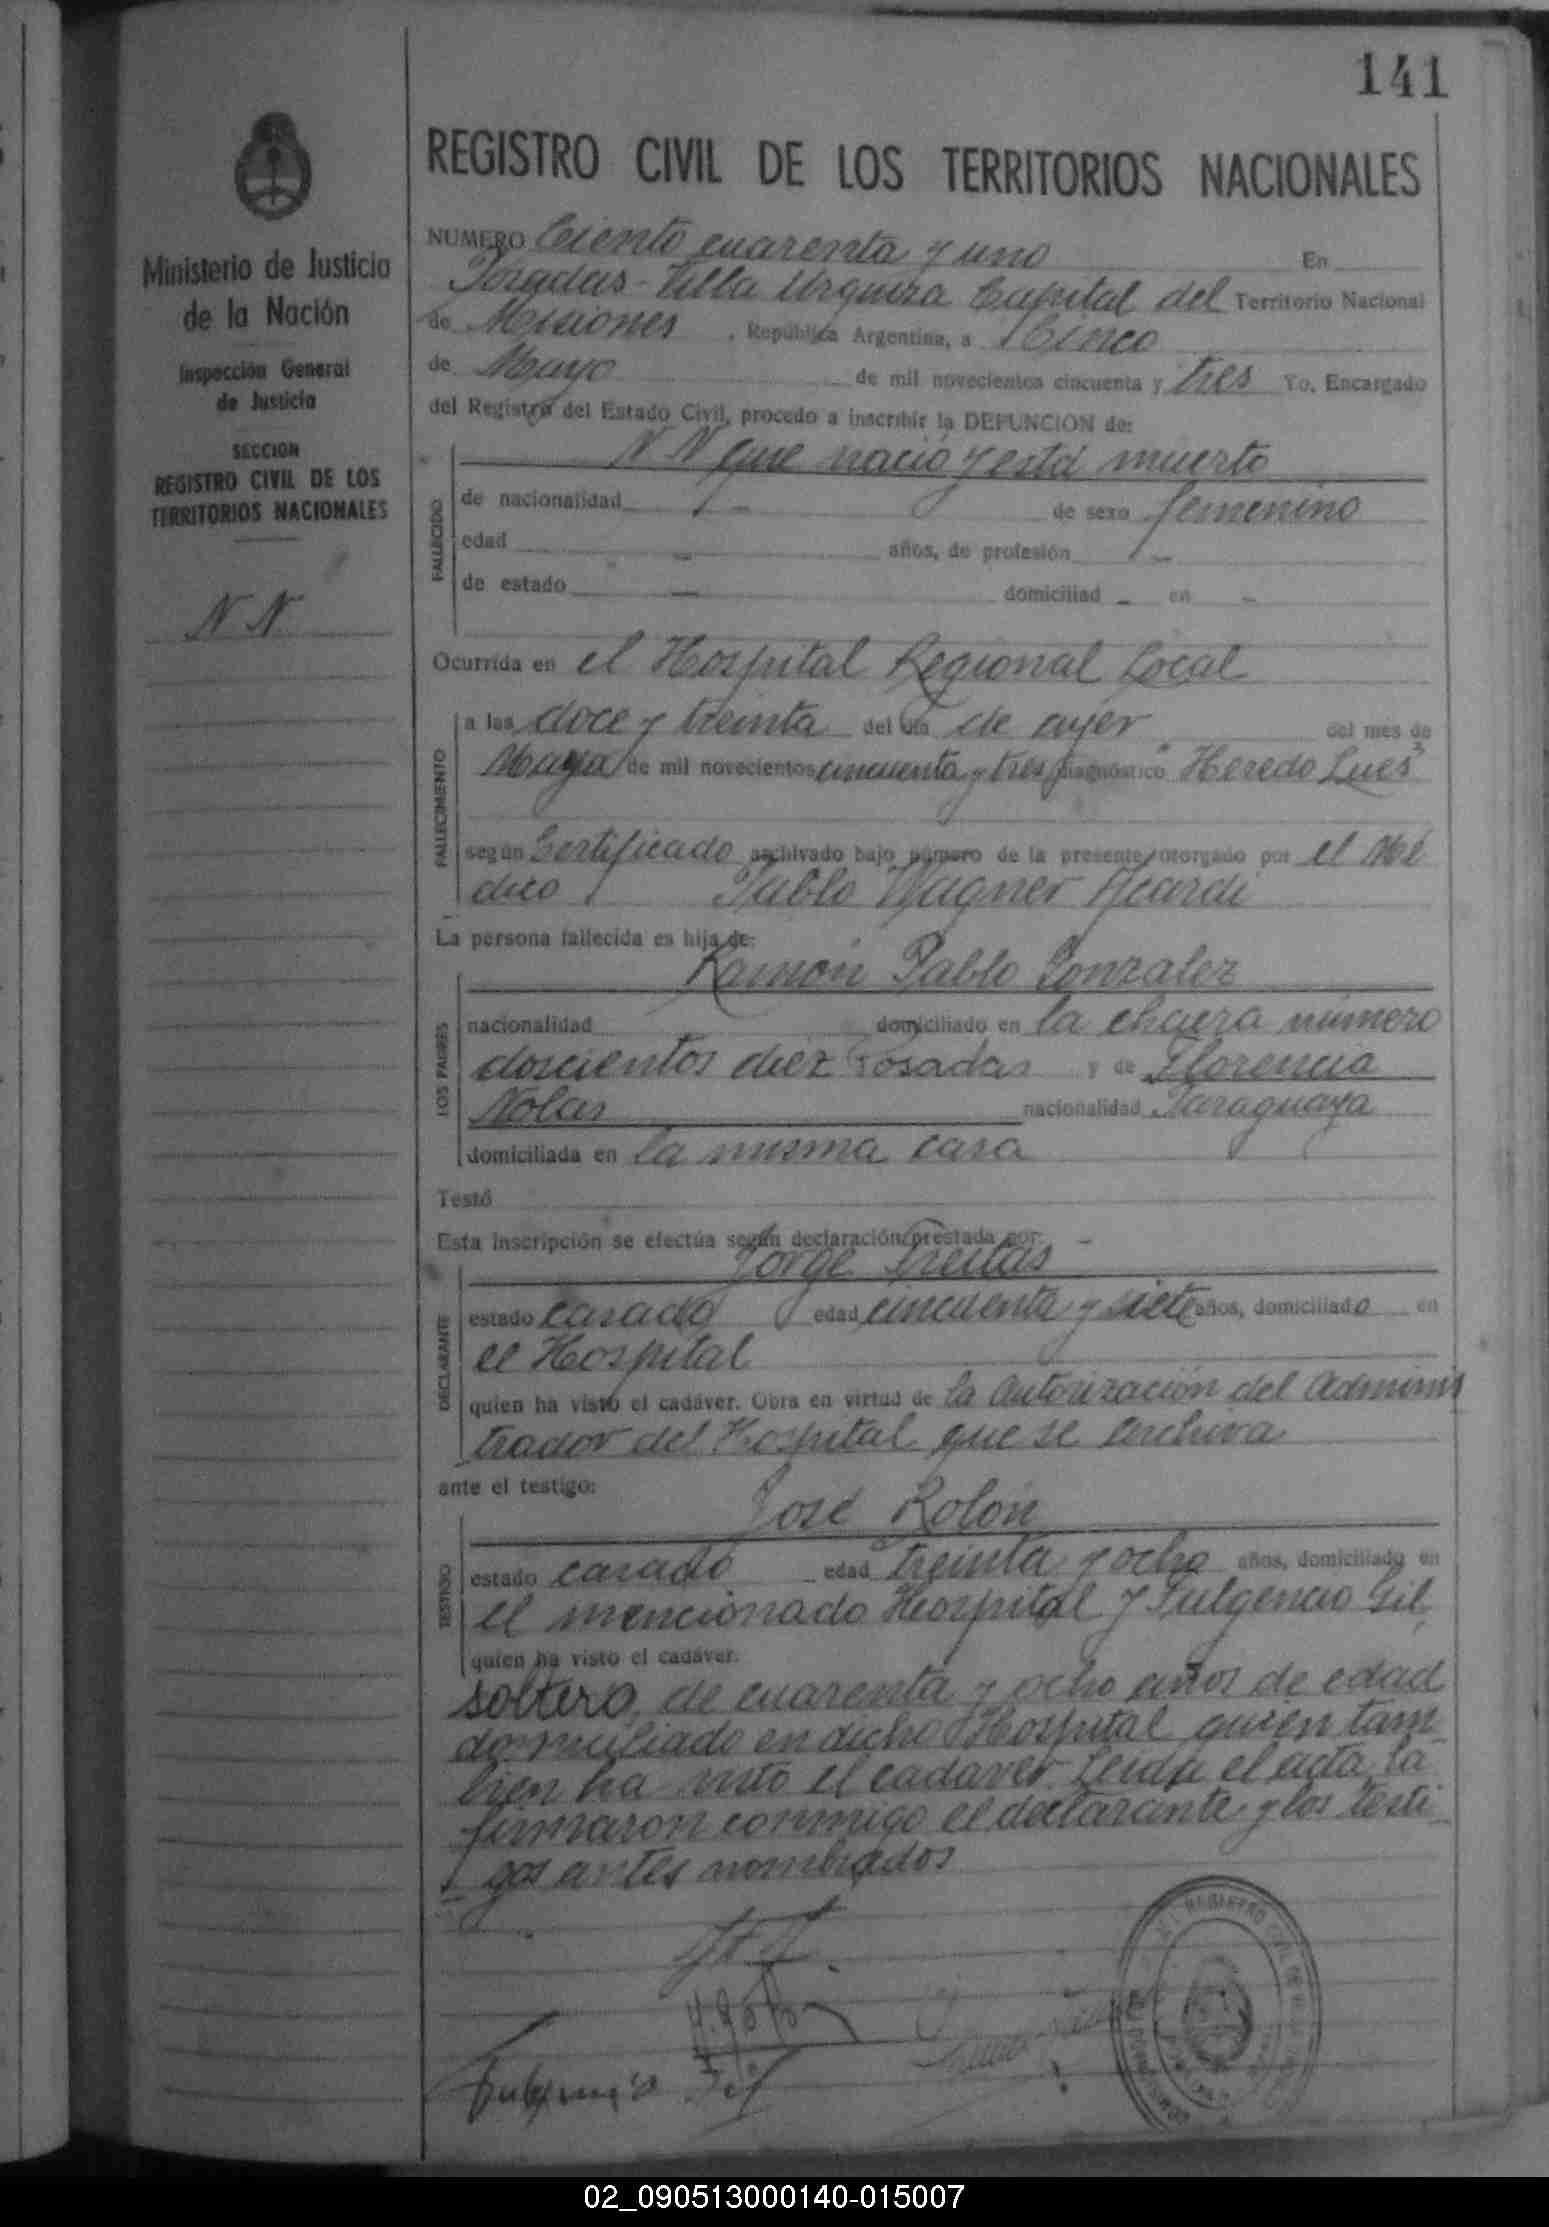 141
REGISTRO CIVIL DE LOS TERRITORIOS NACIONALES
Ministerio de Justicia
de la Nación
Inspección General
de Justicia
SECCION
REGISTRO CIVIL DE LOS
TERRITORIOS NACIONALES
N N
NUMERO Ciento cuarenta y uno En
Posadas - Villa Urquiza Capital del Territorio Nacional
de Misiones, República Argentina, a Cinco
de Mayo de mil novecientos cincuenta y tres Yo, Encargado
del Registro del Estado Civil, procedo a inscribir la DEFUNCION de:
N N que nació y está muerto
FALLECIDO
de nacionalidad - de sexo femenino
edad - años, de profesión -
de estado - domiciliad - en -
Ocurrida en el Hospital Regional Local
FALLECIMIENTO
a las doce y treinta del día de ayer del mes de
Mayo de mil novecientos cincuenta y tres diagnóstico "Heredo Lues"
según Certificado archivado bajo número de la presente, otorgado por el Mé
dico Pablo Wagner
La persona fallecida es hija de:
Ramón Pablo Gonzalez
LOS PADRES
nacionalidad domiciliado en la chacra número
doscientos diez Posadas y de Florencia
Nolas nacionalidad Paraguaya
domiciliada en la misma casa
Testó
Esta inscripción se efectúa según declaración prestada por: -
Jorge Freitas
DECLARANTE
estado casado edad cincuenta y siete años, domiciliado en
el Hospital
quien ha visto el cadáver. Obra en virtud de la autorización del Adminis
trador del Hospital que se archiva
ante el testigo:
José Rolón
TESTIGO
estado casado edad treinta y ocho años, domiciliado en
el mencionado Hospital y Fulgencio Gil,
quien ha visto el cadáver.
soltero, de cuarenta y ocho años de edad
domiciliado en dicho Hospital quien tam-
bien ha visto el cadaver. Leida el acta, la
firmaron conmigo el declarante y los testi-
gos antes nombrados
Fulgencio Gil
02_090513000140-015007